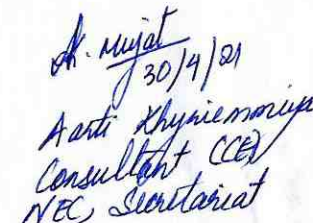 30/4/21
Aarti Khyriemmujat
Consultant (CE)
NEC, Secretariat